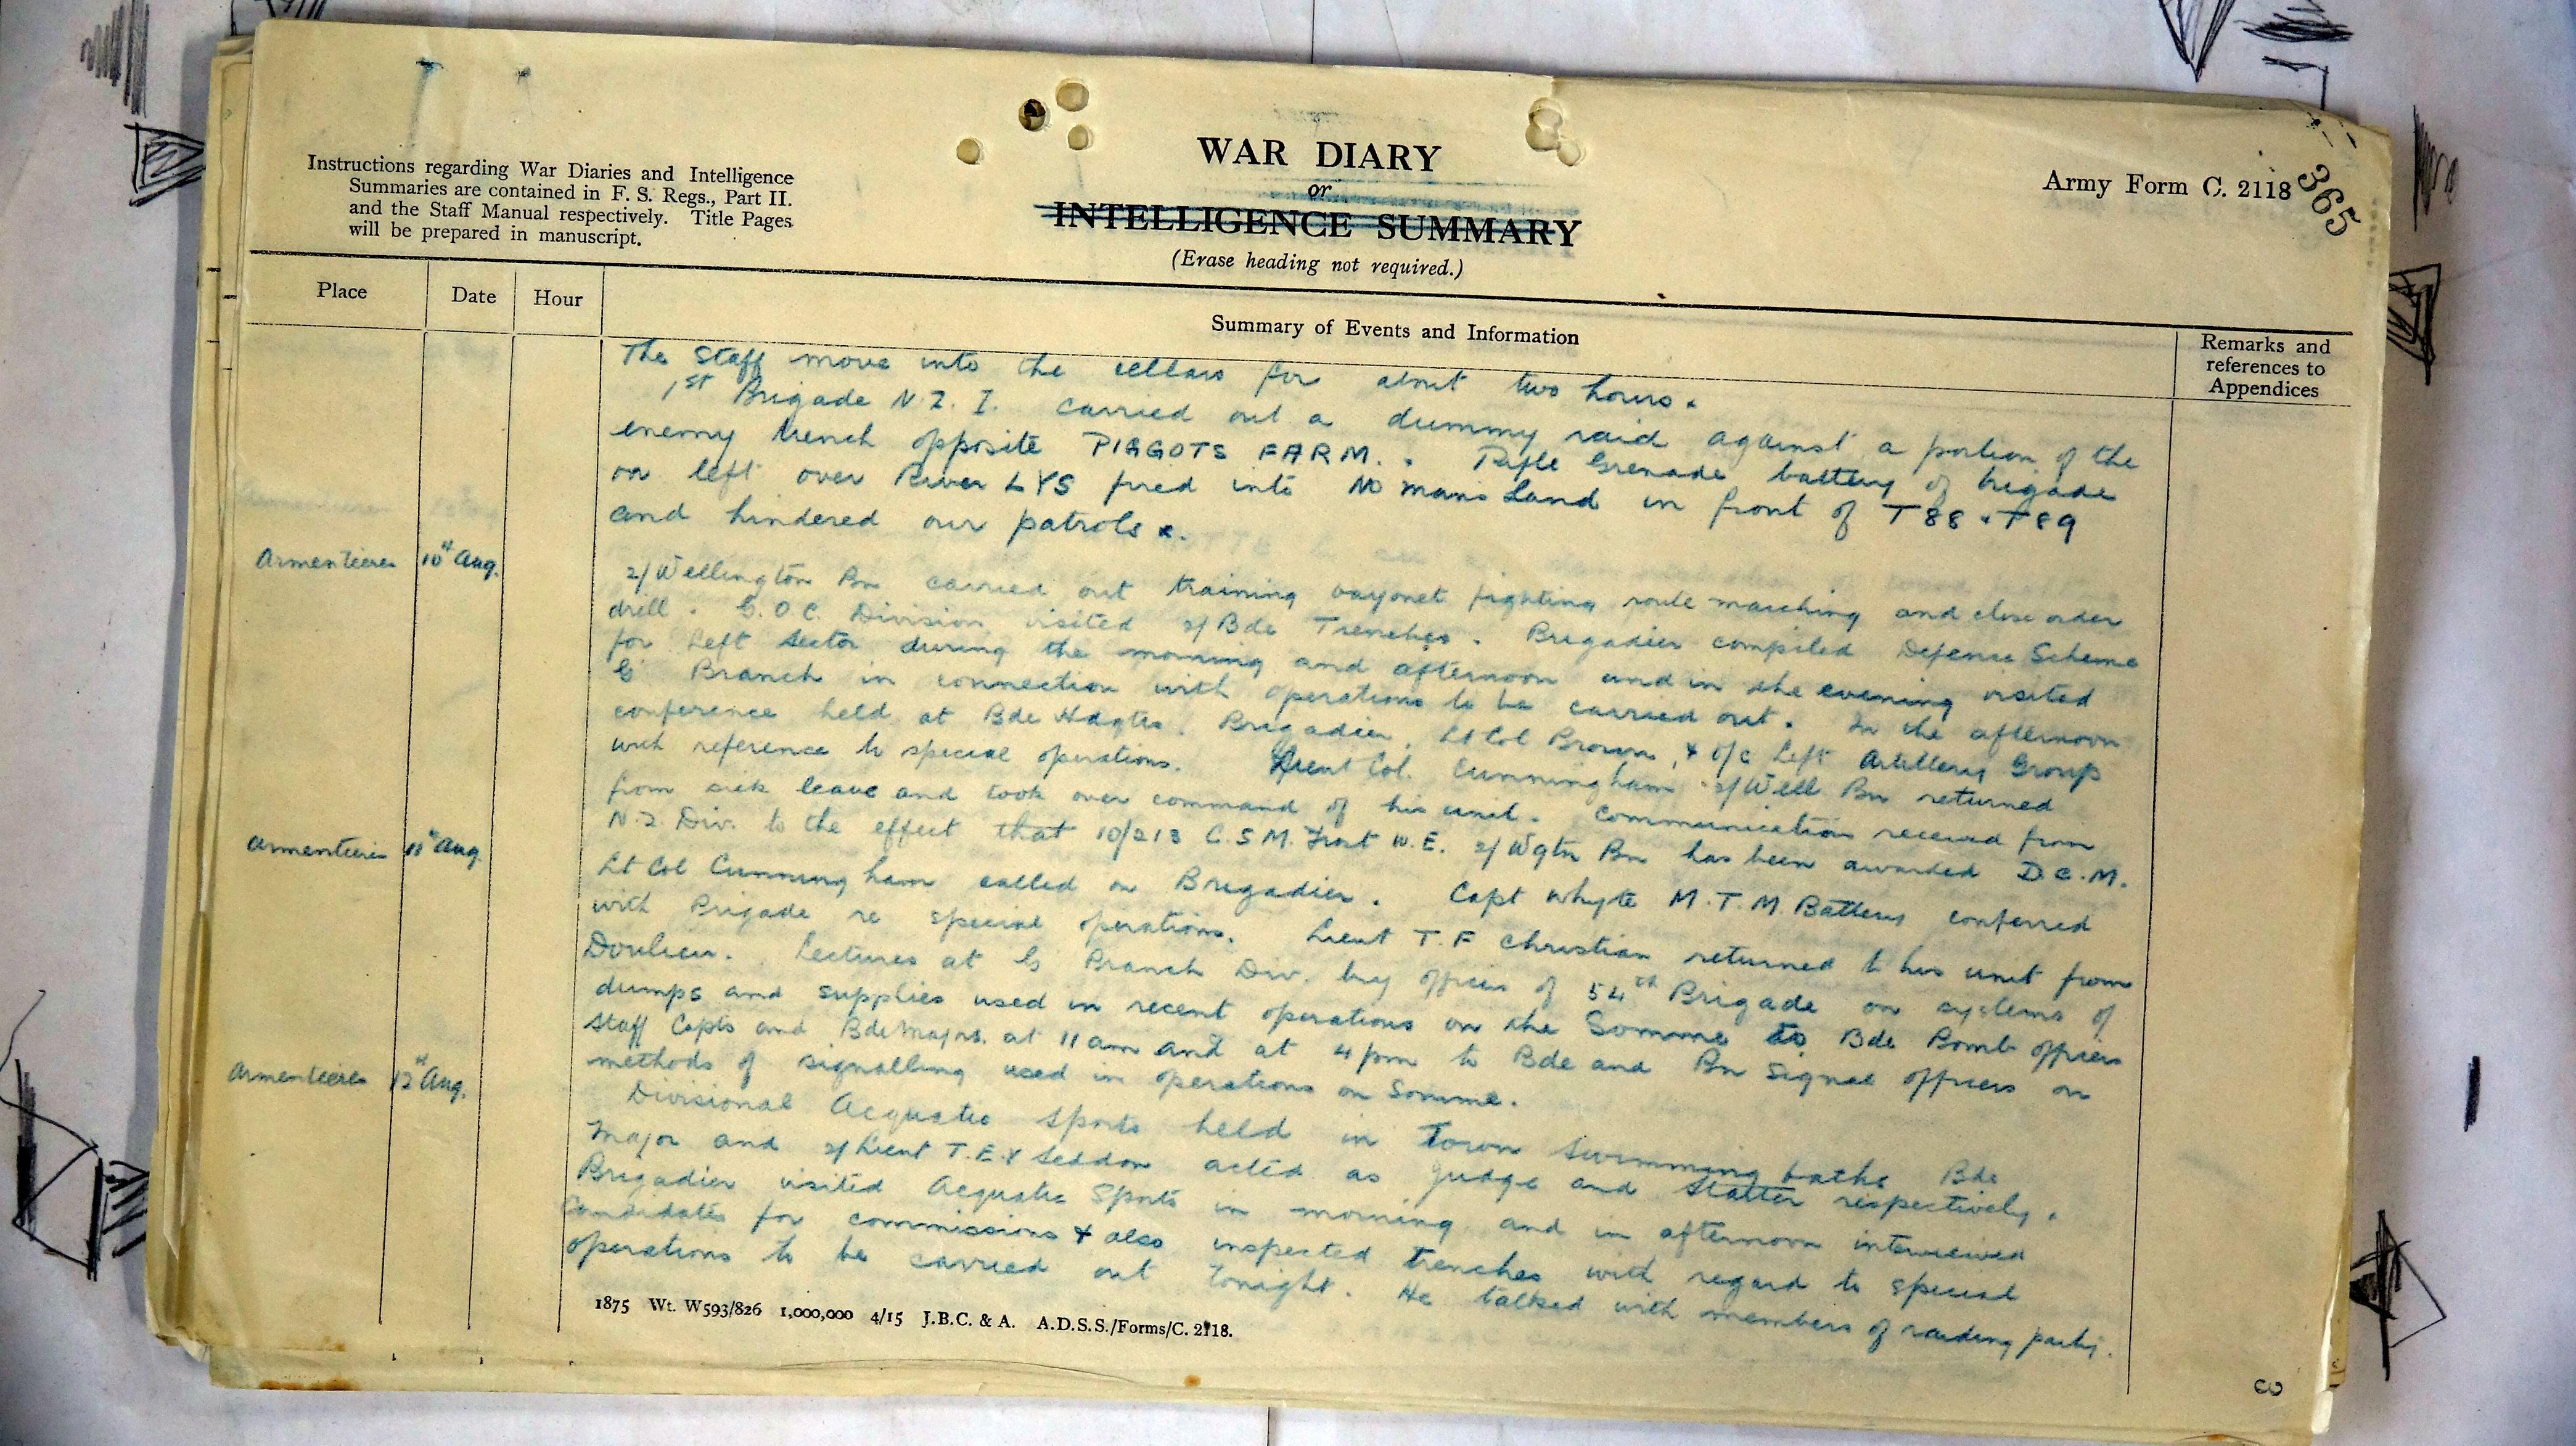 Instructions regarding War Diaries and Intelligence
Summaries are contained in F. S. Regs., Part II.
and the Staff Manual respectively. Title Pages
will be prepared in manuscript.
WAR DIARY
or
INTELLIGENCE SUMMARY
(Erase heading not required.)
Army Form C. 2118
365
Place
Date
Hour
Summary of Events and Information
Remarks and
references to
Appendices
The Staff move into the cellars for about two hours.
1st Brigade N.Z.I. carried out a dummy raid against a portion of the
enemy trench opposite PIGGOTS FARM. Rifle Grenade battery of brigade
on left over River LYS fired into No mans Land in front of T88 & T89
and hindered our patrols.
Armentieres 10th Aug.
2/Wellington Bn carried out training bayonet fighting route marching and close order
drill. G.O.C. Division visited 2/Bde Trenches. Brigadier compiled Defence Scheme
for Left Sector during the morning and afternoon and in the evening visited
G Branch in connection with operations to be carried out. In the afternoon
conference held at Bde Hdqtrs. Brigadier, Lt Col Brown, & O/C Left Artillery Group
with reference to special operations. Lieut Col. Cunningham 2/Well Bn returned
from sick leave and took over command of his unit. Communication received from
N.Z. Div. to the effect that 10/213 C.S.M. Frost W.E. 2/Wgtn Bn has been awarded D.C.M.
Armentieres 11th Aug.
Lt Col Cunningham called on Brigadier. Capt Whyte M.T.M. Battery conferred
with Brigade re special operations. Lieut T.F Christian returned to his unit from
Doulieu. Lectures at G Branch Div. by officer of 54th Brigade on systems of
dumps and supplies used in recent operations on the Somme to Bde Bomb officers
Staff Capts and Bde Majors. at 11 am and at 4 pm to Bde and Bn Signal officers on
methods of signalling used in operations on Somme.
Armentieres 12th Aug.
Divisional Acquatic Sports held in Town Swimming baths Bde
Major and 2/Lieut T.E.Y Seddon acted as judge and Starter respectively.
Brigadier visited Acquatic Sports in morning and in afternoon interviewed
Candidates for commissions & also inspected trenches with regard to special
operations to be carried out tonight. He talked with members of raiding party.
1875 Wt. W593/826 1,000,000 4/15 J.B.C. & A. A.D.S.S./Forms/C. 2118.